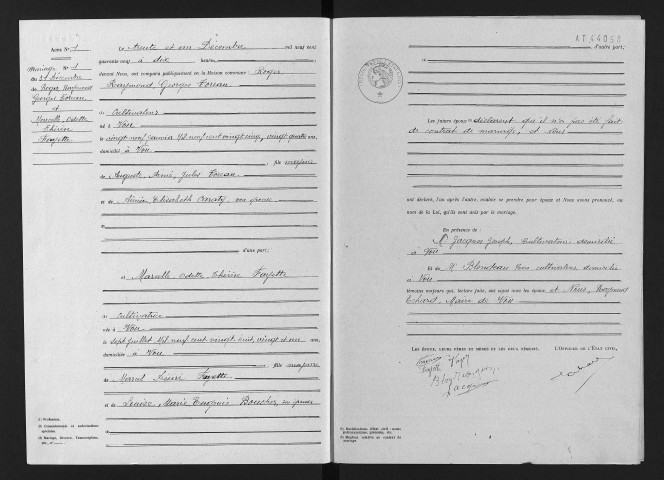 ACTE N° 1
Mariage N° 1
du 31 décembre
Roger Raymond
Georges
et
Marcelle Odette
Thérèse
Fayette
Le trente et un Décembre mil neuf cent
quarante neuf à dix heures
devant Nous, ont comparu publiquement en la Maison commune : Roger
Raymond Georges
cultivateur
né à Vou
le vingt neuf janvier mil neuf cent vingt cinq, vingt quatre ans,
domicilié à Vou
, fils majeur
de Auguste, Aimé, Jules
et de Aimée Elisabeth son épouse
d'une part;
et Marcelle Odette Thérèse Fayette
cultivatrice
née à Vou
le sept juillet mil neuf cent vingt huit, vingt et un ans,
domiciliée à Vou
, fille majeure
de Marcel Fayette
et de Louise, Marie Eugénie Boucher, son épouse
(1) Profession.
(2) Consentements et autorisations
spéciales.
(3) Mariage, Divorce, Transcription,
AT 44058
d'autre part;
Les futurs époux déclarent qu'il n'a pas été fait
de contrat de mariage, et Nous
ont déclaré, l'un après l'autre, vouloir se prendre pour époux et Nous avons prononcé, au
nom de la Loi, qu'ils sont unis par le mariage.
En présence de
M. Jacques Joseph, cultivateur domicilié
à Vou
Et de M. Blondeau cultivateur domicilié
à Vou
témoins majeurs qui, lecture faite, ont signé avec les époux, et Nous, Raymond
Maire de Vou
LES ÉPOUX, LEURS PÈRES ET MÈRES ET LES DEUX TÉMOINS,
L'OFFICIER DE L'ÉTAT CIVIL,
Fayette